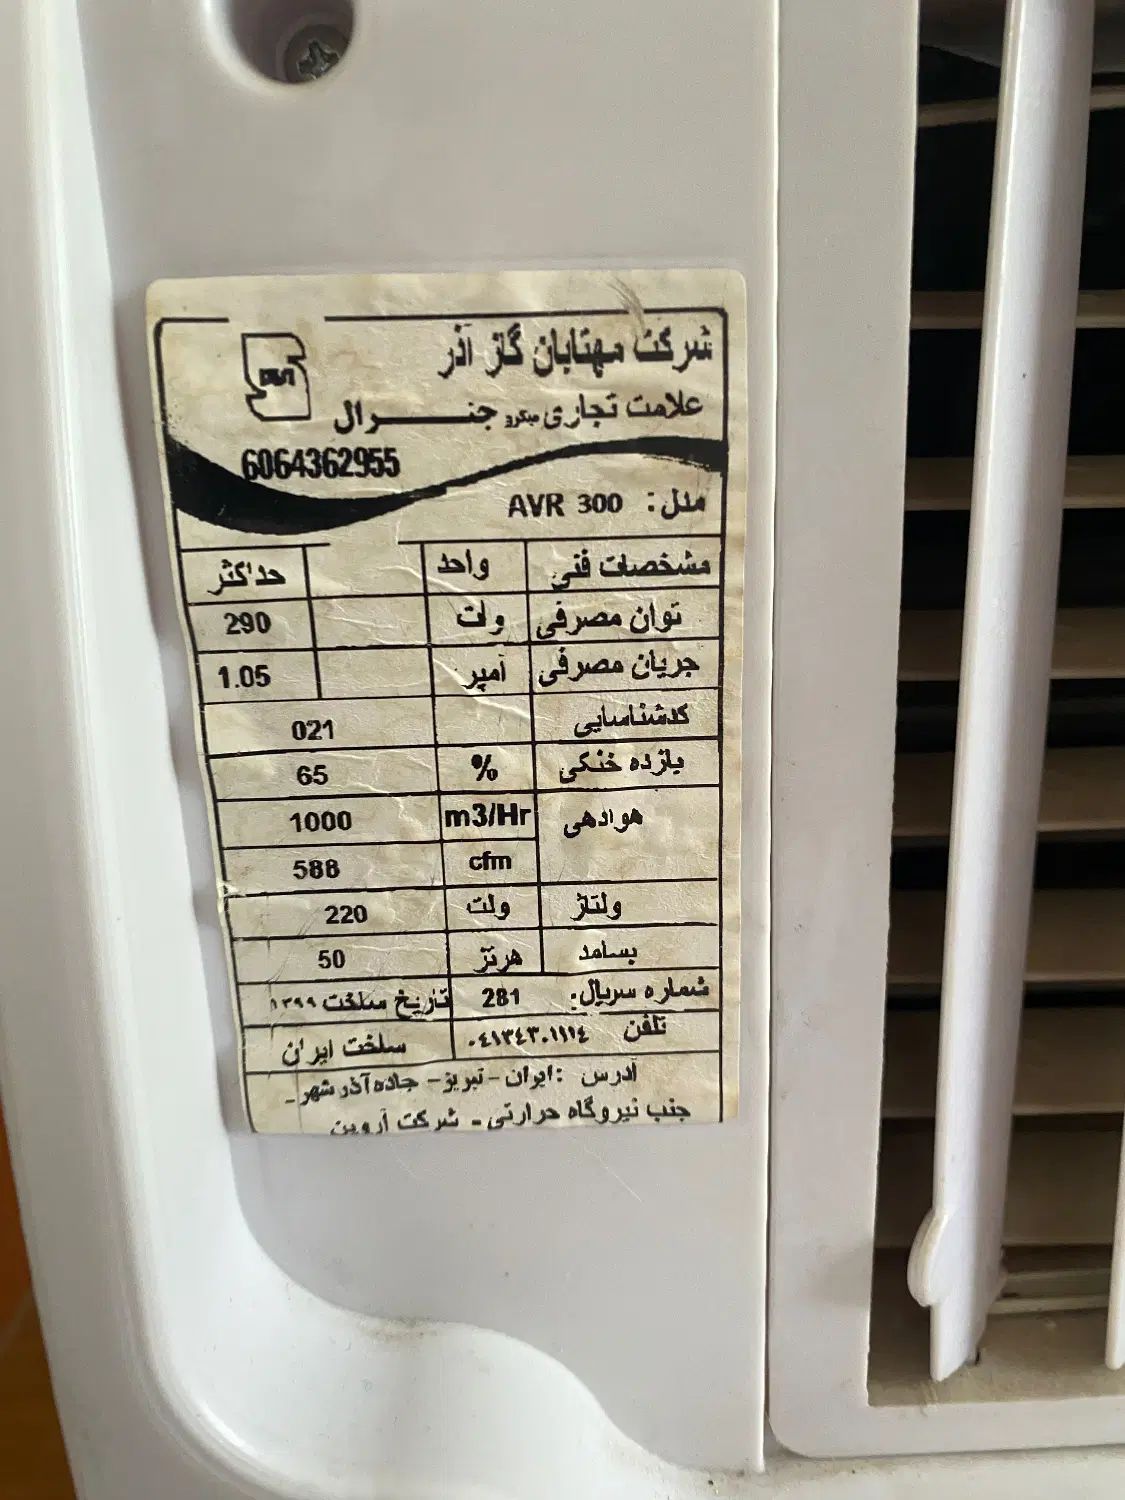 شرکت مهتابان گاز آذر
علامت تجاری میکرو جنرال
6064362955
مدل: AVR 300
مشخصات فنی واحد حداکثر
توان مصرفی وات 290
جریان مصرفی آمپر 1.05
کدشناسایی 021
بازده خنکی % 65
هوادهی m3/Hr 1000
cfm 588
ولتاژ ولت 220
بسامد هرتز 50
شماره سریال: 281 تاریخ ساخت ۱۳۹۹
تلفن ۰٤۱۳٤۳۰۱۱۱٤ ساخت ایران
آدرس: ایران - تبریز - جاده آذر شهر -
جنب نیروگاه حرارتی - شرکت آروین